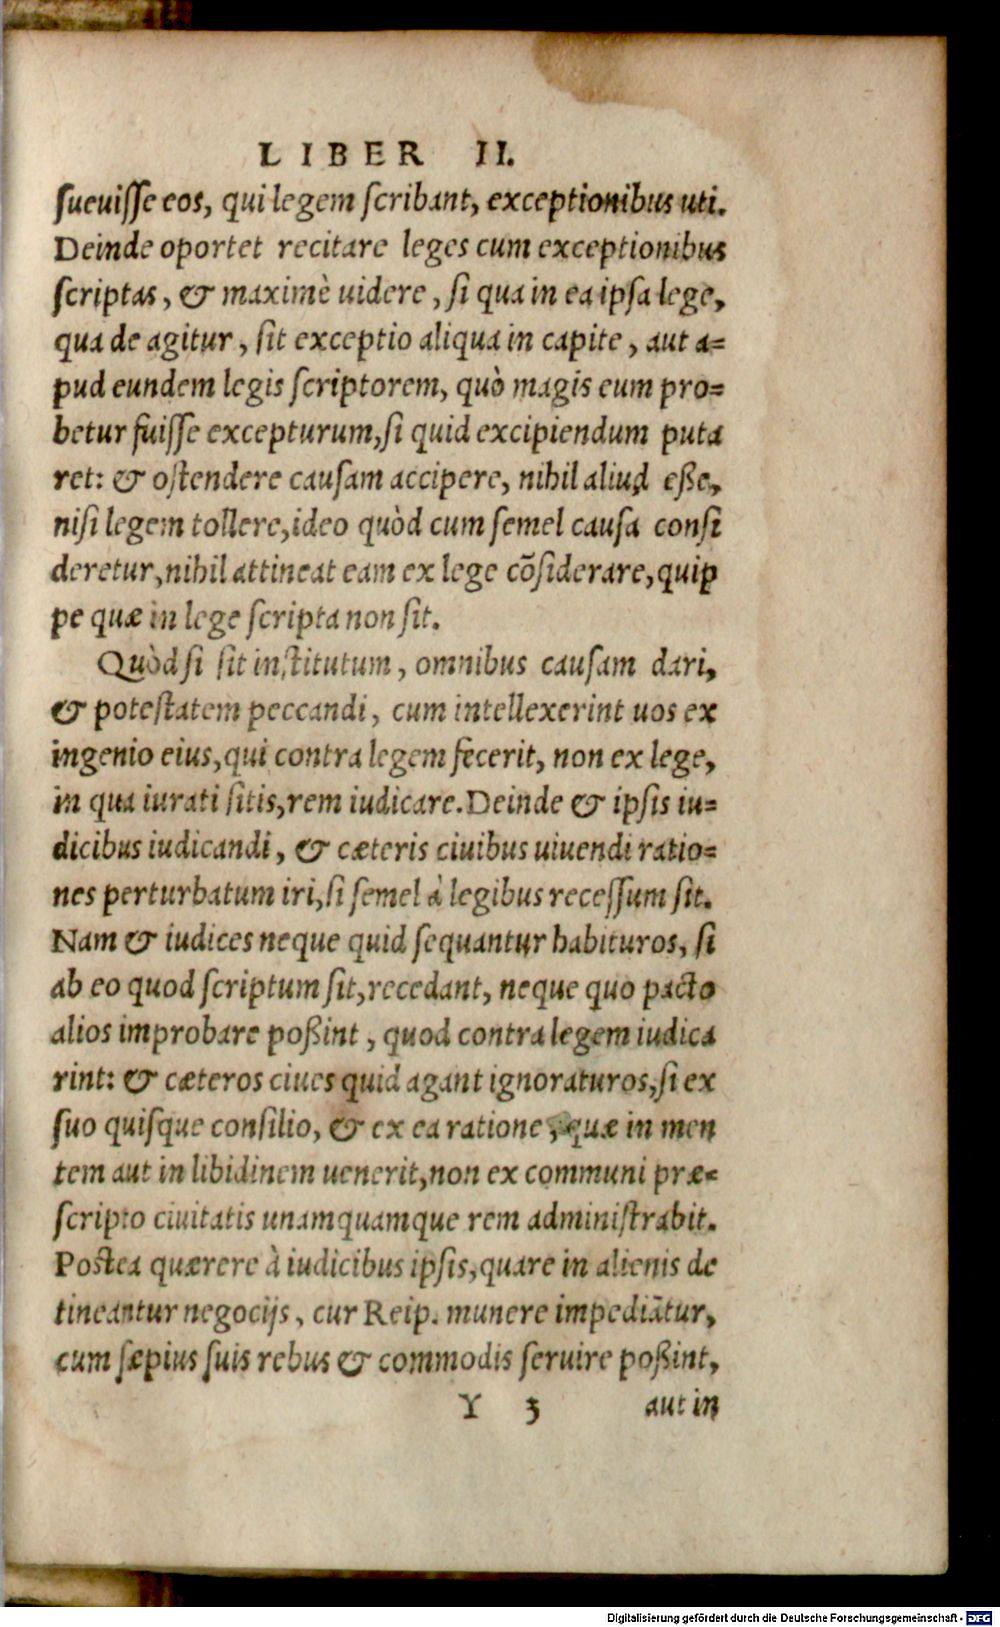 LIBER II.
sueuisse eos, qui legem scribant, exceptionibus uti.
Deinde oportet recitare leges cum exceptionibus
scriptas, & maximè uidere, si qua in ea ipsa lege,
qua de agitur, sit exceptio aliqua in capite, aut a=
pud eundem legis scriptorem, quò magis eum pro=
betur fuisse excepturum, si quid excipiendum puta
ret: & ostendere causam accipere, nihil aliud eße,
nisi legem tollere, ideo quòd cum semel causa consi
deretur, nihil attineat eam ex lege cõsiderare, quip
pe quæ in lege scripta non sit.
Quòd si sit institutum, omnibus causam dari,
& potestatem peccandi, cum intellexerint uos ex
ingenio eius, qui contra legem fecerit, non ex lege,
in qua iurati sitis, rem iudicare. Deinde & ipsis iu=
dicibus iudicandi, & cæteris ciuibus uiuendi ratio=
nes perturbatum iri, si semel à legibus recessum sit.
Nam & iudices neque quid sequantur habituros, si
ab eo quod scriptum sit, recedant, neque quo pacto
alios improbare poßint, quod contra legem iudica
rint: & cæteros ciues quid agant ignoraturos, si ex
suo quisque consilio, & ex ea ratione, quæ in men
tem aut in libidinem uenerit, non ex communi præ=
scripto ciuitatis unamquamque rem administrabit.
Postea quærere à iudicibus ipsis, quare in alienis de
tineantur negocijs, cur Reip. munere impediãtur,
cum sæpius suis rebus & commodis seruire poßint,
Y 3 aut in
Digitalisierung gefördert durch die Deutsche Forschungsgemeinschaft - DFG